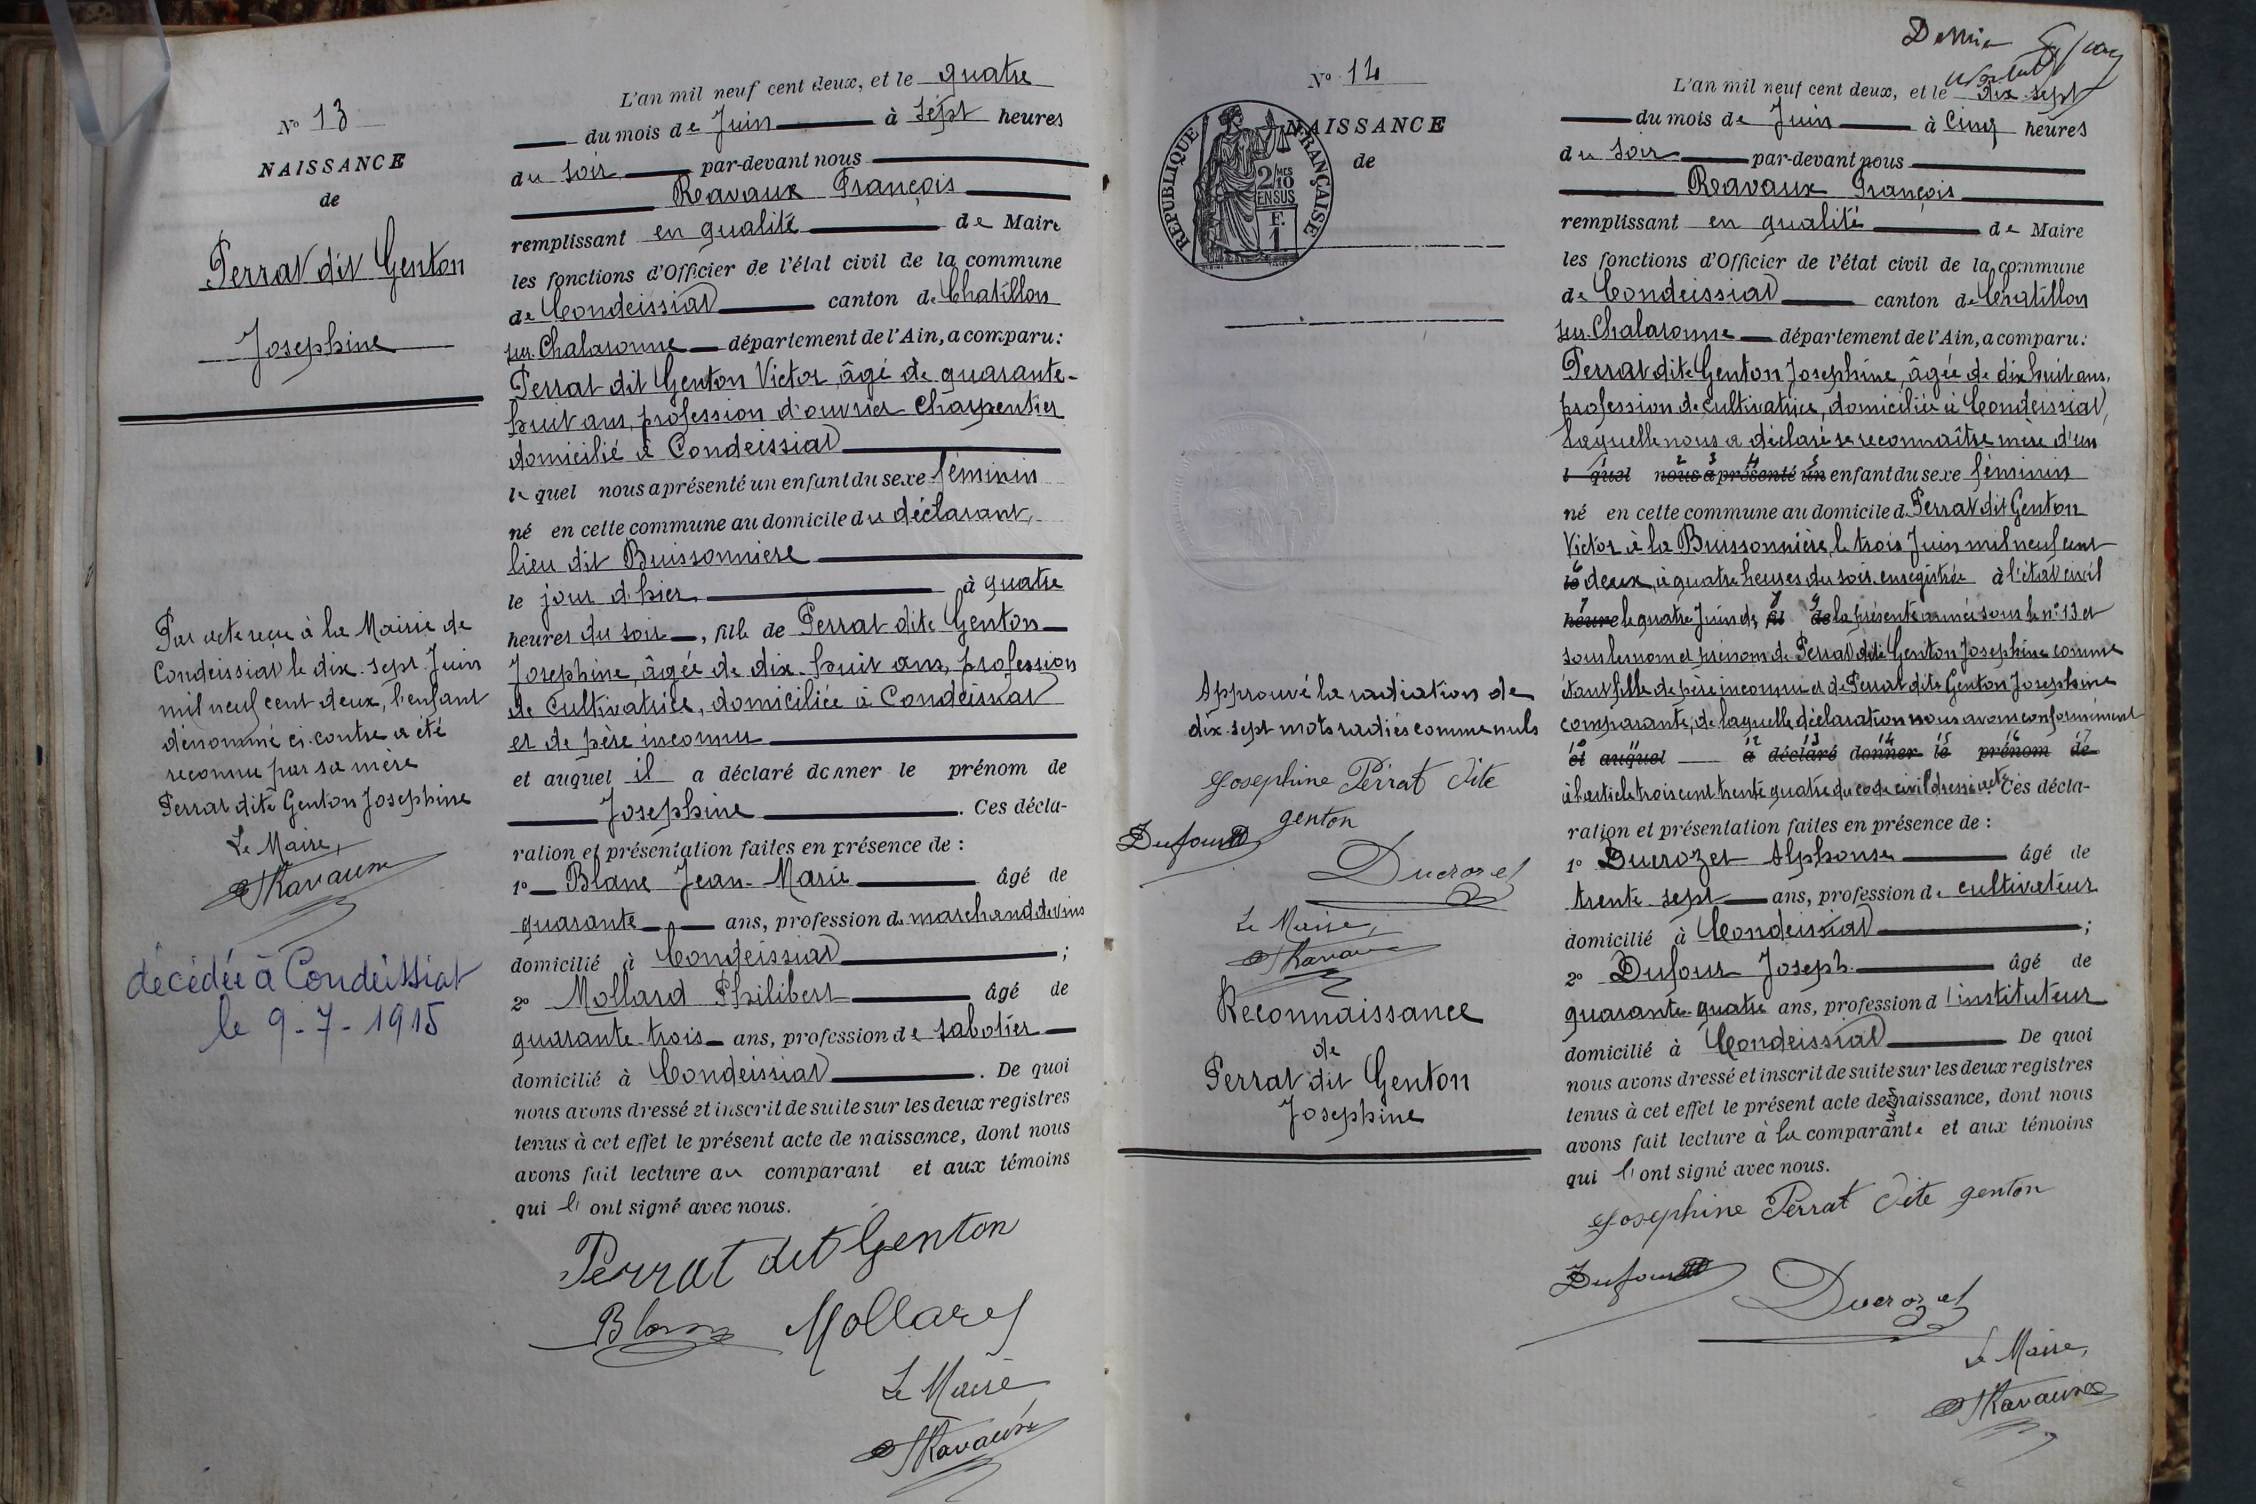 N° 13
NAISSANCE
de
Perrat dit Genton
Josephine
Par acte reçu à la Mairie de
Condeissiat le dix-sept Juin
mil neuf cent deux, l'enfant
dénommé ci-contre a été
reconnu par sa mère
Perrat dite Genton Josephine
Le Maire,
Ravaux
décédée à Condeissiat
le 9-7-1915
L'an mil neuf cent deux, et le quatre
du mois de Juin à sept heures
du soir par-devant nous
Ravaux François
remplissant en qualité de Maire
les fonctions d'Officier de l'état civil de la commune
de Condeissiat canton de Chatillon
sur Chalaronne département de l'Ain, a comparu:
Perrat dit Genton Victor, âgé de quarante-
huit ans, profession d'ouvrier charpentier
domicilié à Condeissiat
le quel nous a présenté un enfant du sexe féminin
né en cette commune au domicile du déclarant,
lieu dit Buissonniere
le jour d'hier, à quatre
heures du soir, fille de Perrat dite Genton
Josephine, âgée de dix-huit ans, profession
de cultivatrice, domiciliée à Condeissiat
et de père inconnu
et auquel il a déclaré donner le prénom de
Josephine. Ces décla-
ration et présentation faites en présence de :
1° Blanc Jean-Marie âgé de
quarante ans, profession de marchand de vins
domicilié à Condeissiat ;
2° Mollard Philibert âgé de
quarante-trois ans, profession de sabotier
domicilié à Condeissiat. De quoi
nous avons dressé et inscrit de suite sur les deux registres
tenus à cet effet le présent acte de naissance, dont nous
avons fait lecture au comparant et aux témoins
qui l'ont signé avec nous.
Perrat dit Genton
Blanc Mollard
Le Maire
Ravaux
N° 14
NAISSANCE
de
RÉPUBLIQUE FRANÇAISE
2/10
MES
EN SUS
F.
1
Approuvé la radiation de
dix-sept mots radiés comme nuls
Josephine Perrat dite
genton
Dufour
Ducrozet
Le Maire,
Ravaux
Reconnaissance
de
Perrat dit Genton
Josephine
L'an mil neuf cent deux, et le dix-sept
du mois de Juin à cinq heures
du soir par-devant nous
Ravaux François
remplissant en qualité de Maire
les fonctions d'Officier de l'état civil de la commune
de Condeissiat canton de Chatillon
sur Chalaronne département de l'Ain, a comparu:
Perrat dite Genton Josephine, âgée de dix huit ans,
profession de cultivatrice, domiciliée à Condeissiat,
laquelle nous a déclaré se reconnaître mère d'un
1 2 3 4 5
l quel nous a présenté un enfant du sexe féminin
né en cette commune au domicile d Perrat dit Genton
Victor à la Buissonnière, le trois Juin mil neuf cent
6
le deux, à quatre heures du soir, enregistrée à l'état civil
7 8 9
heure le quatre Juin de fil de la présente année sous le n° 13 et
sous le nom et prénom de Perrat dite Genton Josephine comme
étant fille de père inconnu et de Perrat dite Genton Josephine
comparante, de laquelle déclaration nous avons conformément
10 11 12 13 14 15 16 17
et auquel a déclaré donner le prénom de
à l'article trois cent trente quatre du code civil dressé acte Ces décla-
ration et présentation faites en présence de :
1° Ducrozet Alphonse âgé de
trente-sept ans, profession de cultivateur
domicilié à Condeissiat ;
2° Dufour Joseph âgé de
quarante-quatre ans, profession d'instituteur
domicilié à Condeissiat De quoi
nous avons dressé et inscrit de suite sur les deux registres
tenus à cet effet le présent acte de naissance, dont nous
avons fait lecture à la comparante et aux témoins
qui l'ont signé avec nous.
Josephine Perrat dite genton
Dufour
Ducrozet
Le Maire,
Ravaux